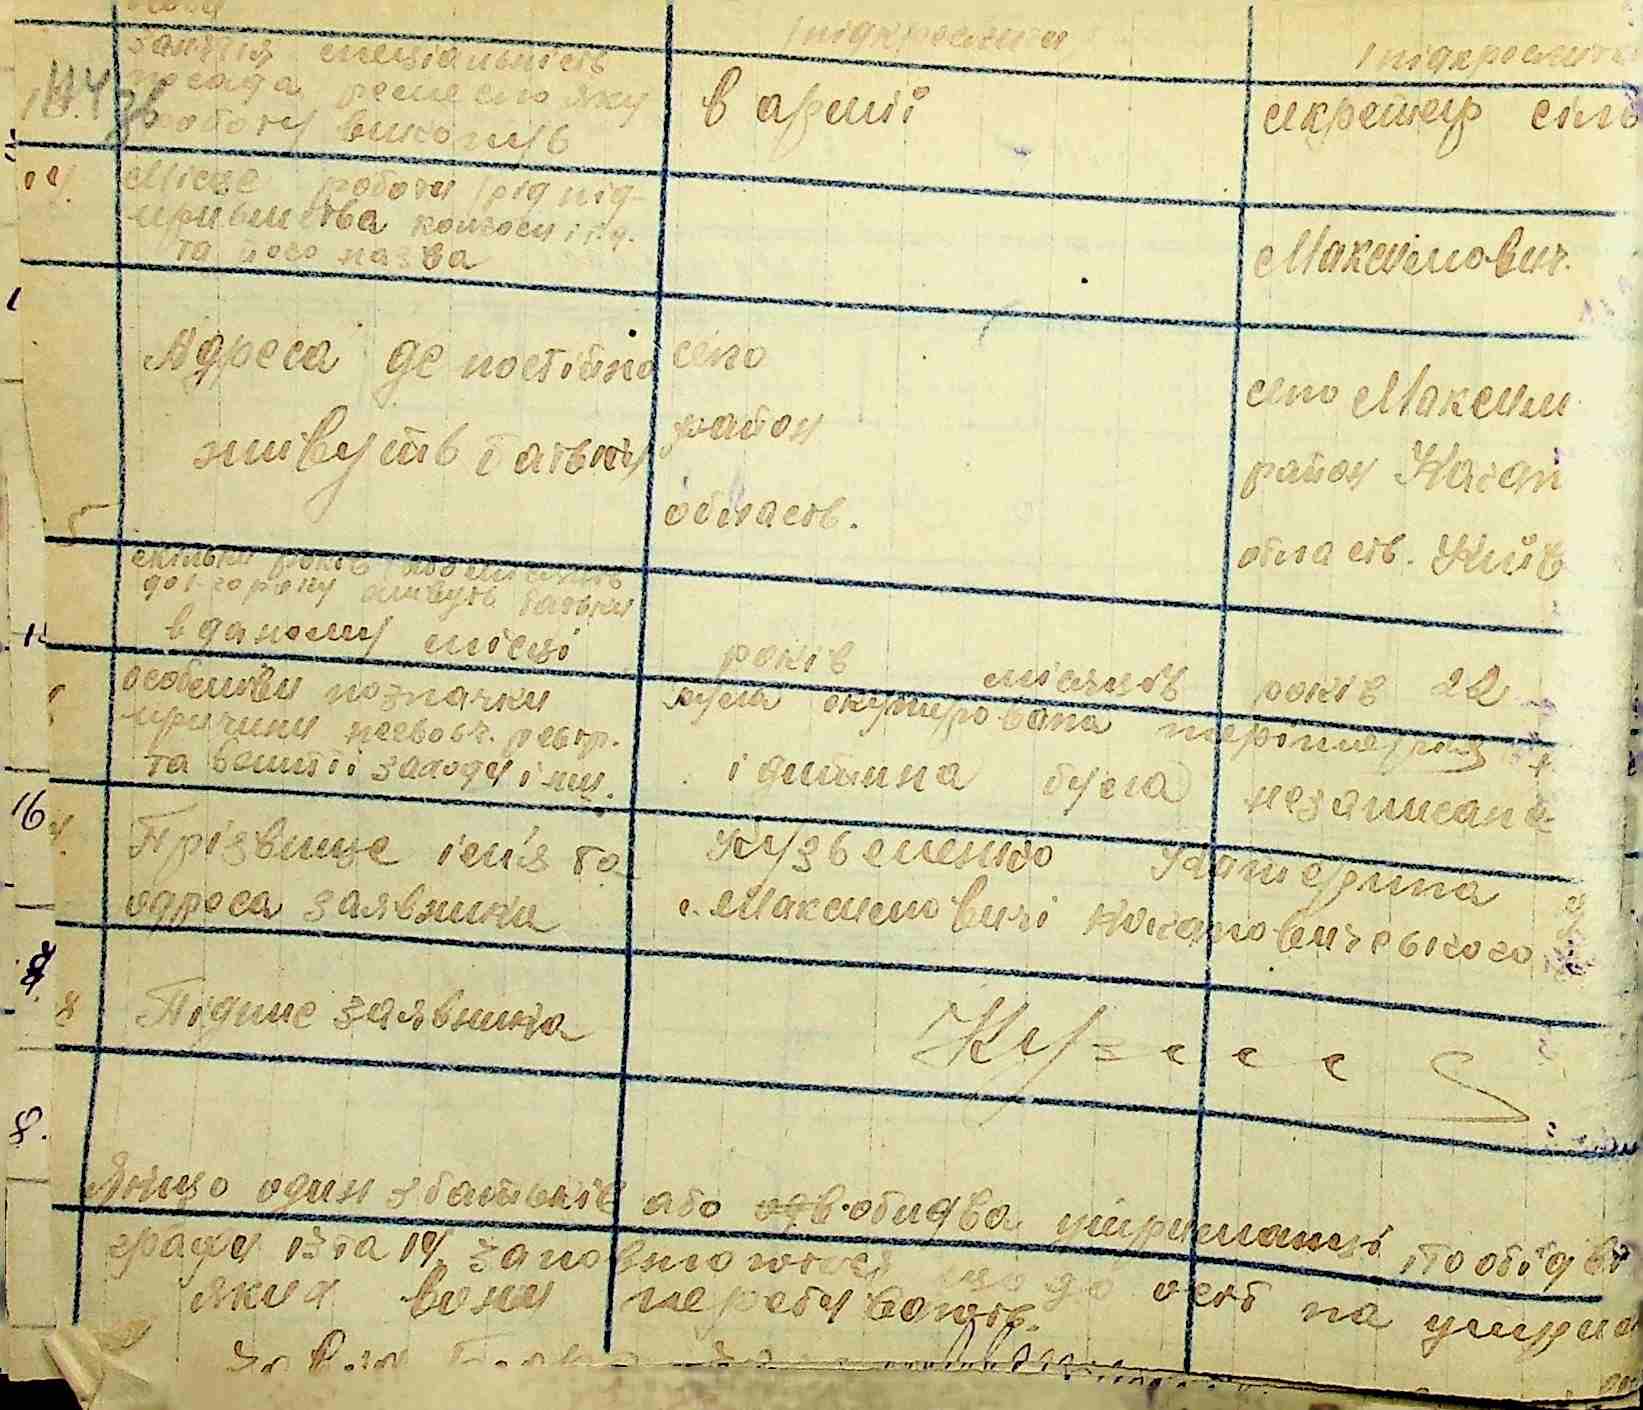 підкреслити підкреслити
заняття спеціальність
посада ремесло яку
роботу виконує
в армії
секретар сіль
Місце роботи (рід під-
приьмства колгосп і т.д.
та його назва
Максимович.
Адреса де постійно
живуть батьки
село
район
область.
село Максим
район Кагано
область. Київ
скільки років або місяців
до 1-го року живуть батьки
в даному місці
років місяців років 22
особливи позначки
причини несвоєч. реєстр.
та вжитті заходи і інш.
була окупирована територия
і дитина була незаписана
Прізвище ім'я та
адреса заявника
Кузьменко Катерина
с. Максимовичі Кагановичського
Підпис заявника
Кузмен
Якщо один з батьків або обидва утриманці то обідві
графи 13 та 14 заповнюються що до осіб на утрим
яких вони перебувають.